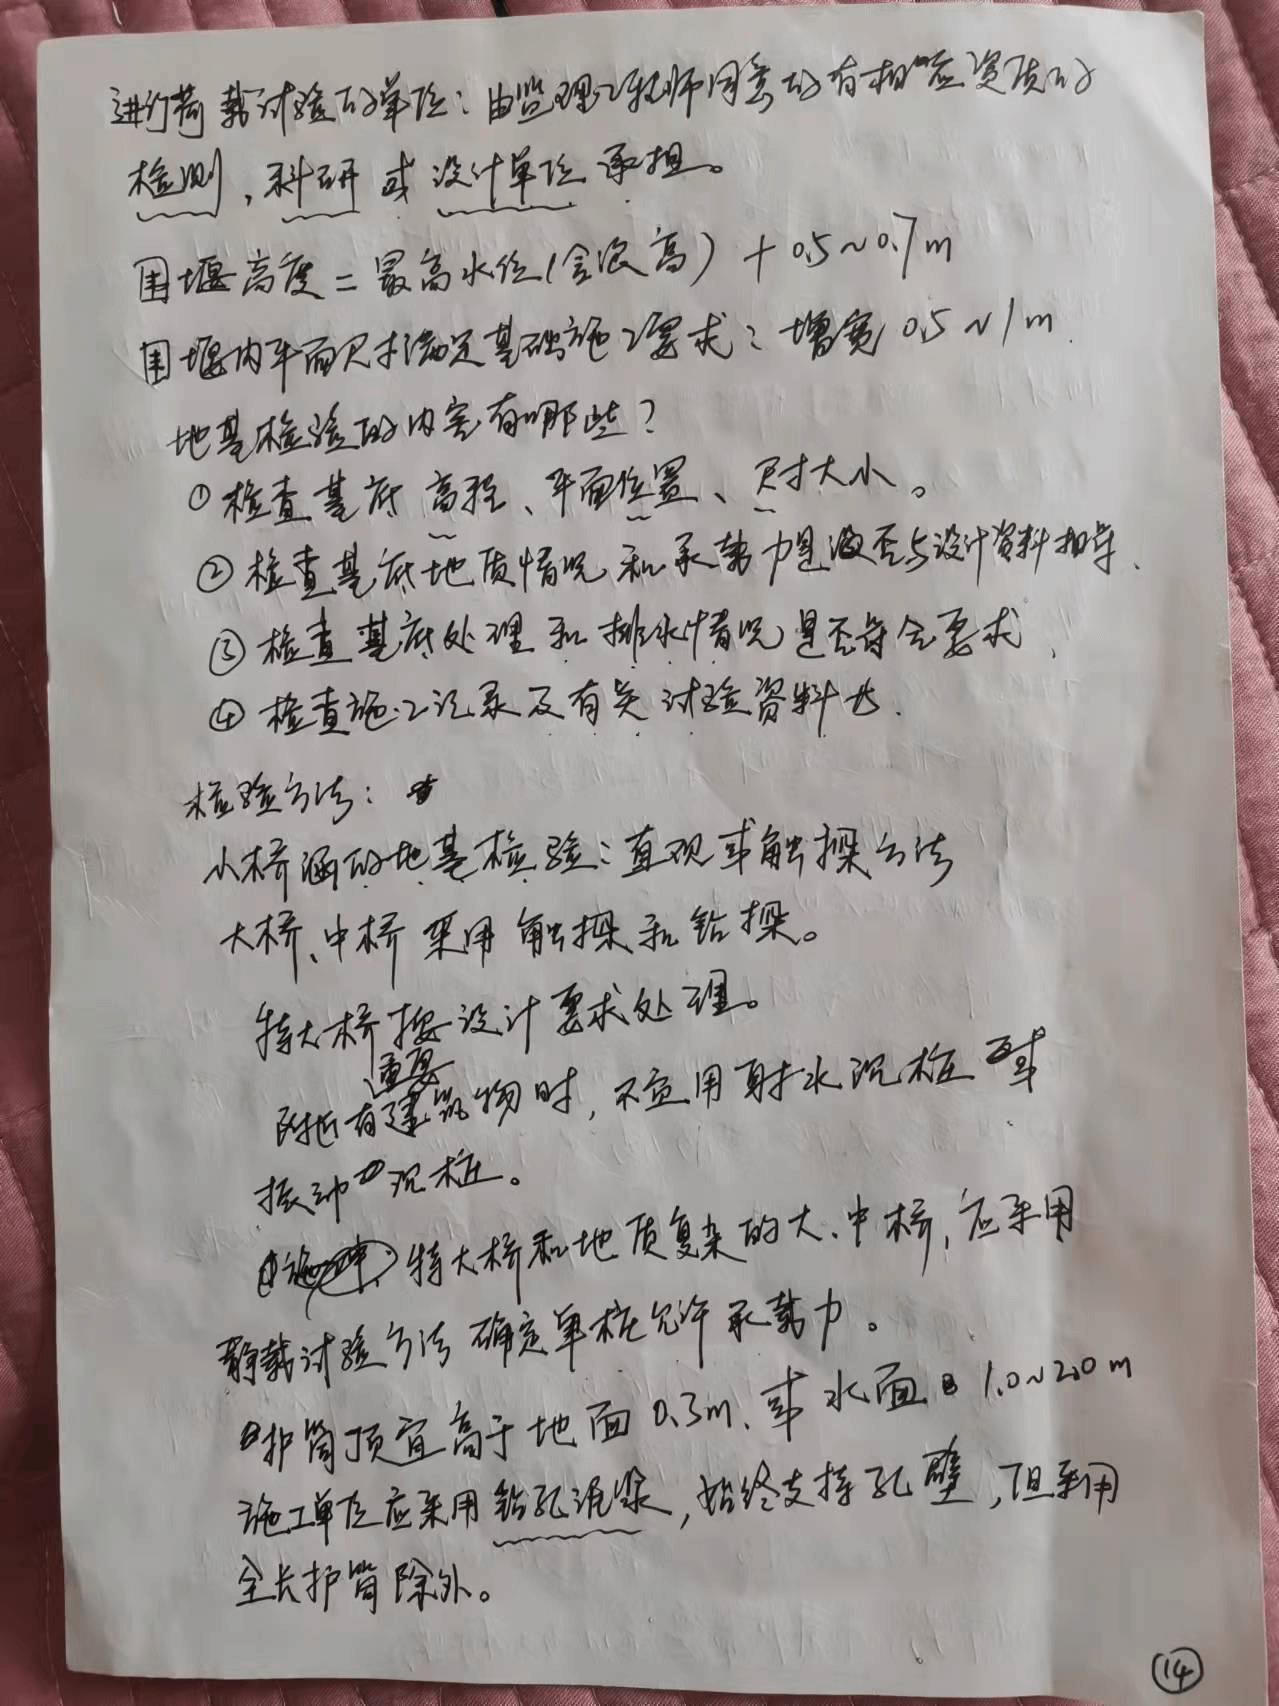 进行荷载试验的单位：由监理工程师同意的有相应资质的
检测、科研或设计单位承担。
围堰高度=最高水位(含浪高)+0.5~0.7m
围堰内平面尺寸满足基础施工要求：增宽0.5~1m.
地基检验的内容有哪些？
①检查基底高程、平面位置、尺寸大小。
②检查基底地质情况和承载力是否与设计资料相符.
③检查基底处理和排水情况是否符合要求.
④检查施工记录及有关试验资料等.
检验方法：
小桥涵的地基检验：直观或触探方法
大桥、中桥采用触探和钻探。
特大桥按设计要求处理。
附近有重要建筑物时，不宜用射水沉桩或
振动沉桩。
特大桥和地质复杂的大、中桥，应采用
静载试验方法确定单桩允许承载力。
护筒顶宜高于地面0.3m.或水面1.0~2.0m
施工单位应采用钻孔泥浆，始终支持孔壁，但采用
全长护筒除外。
⑭